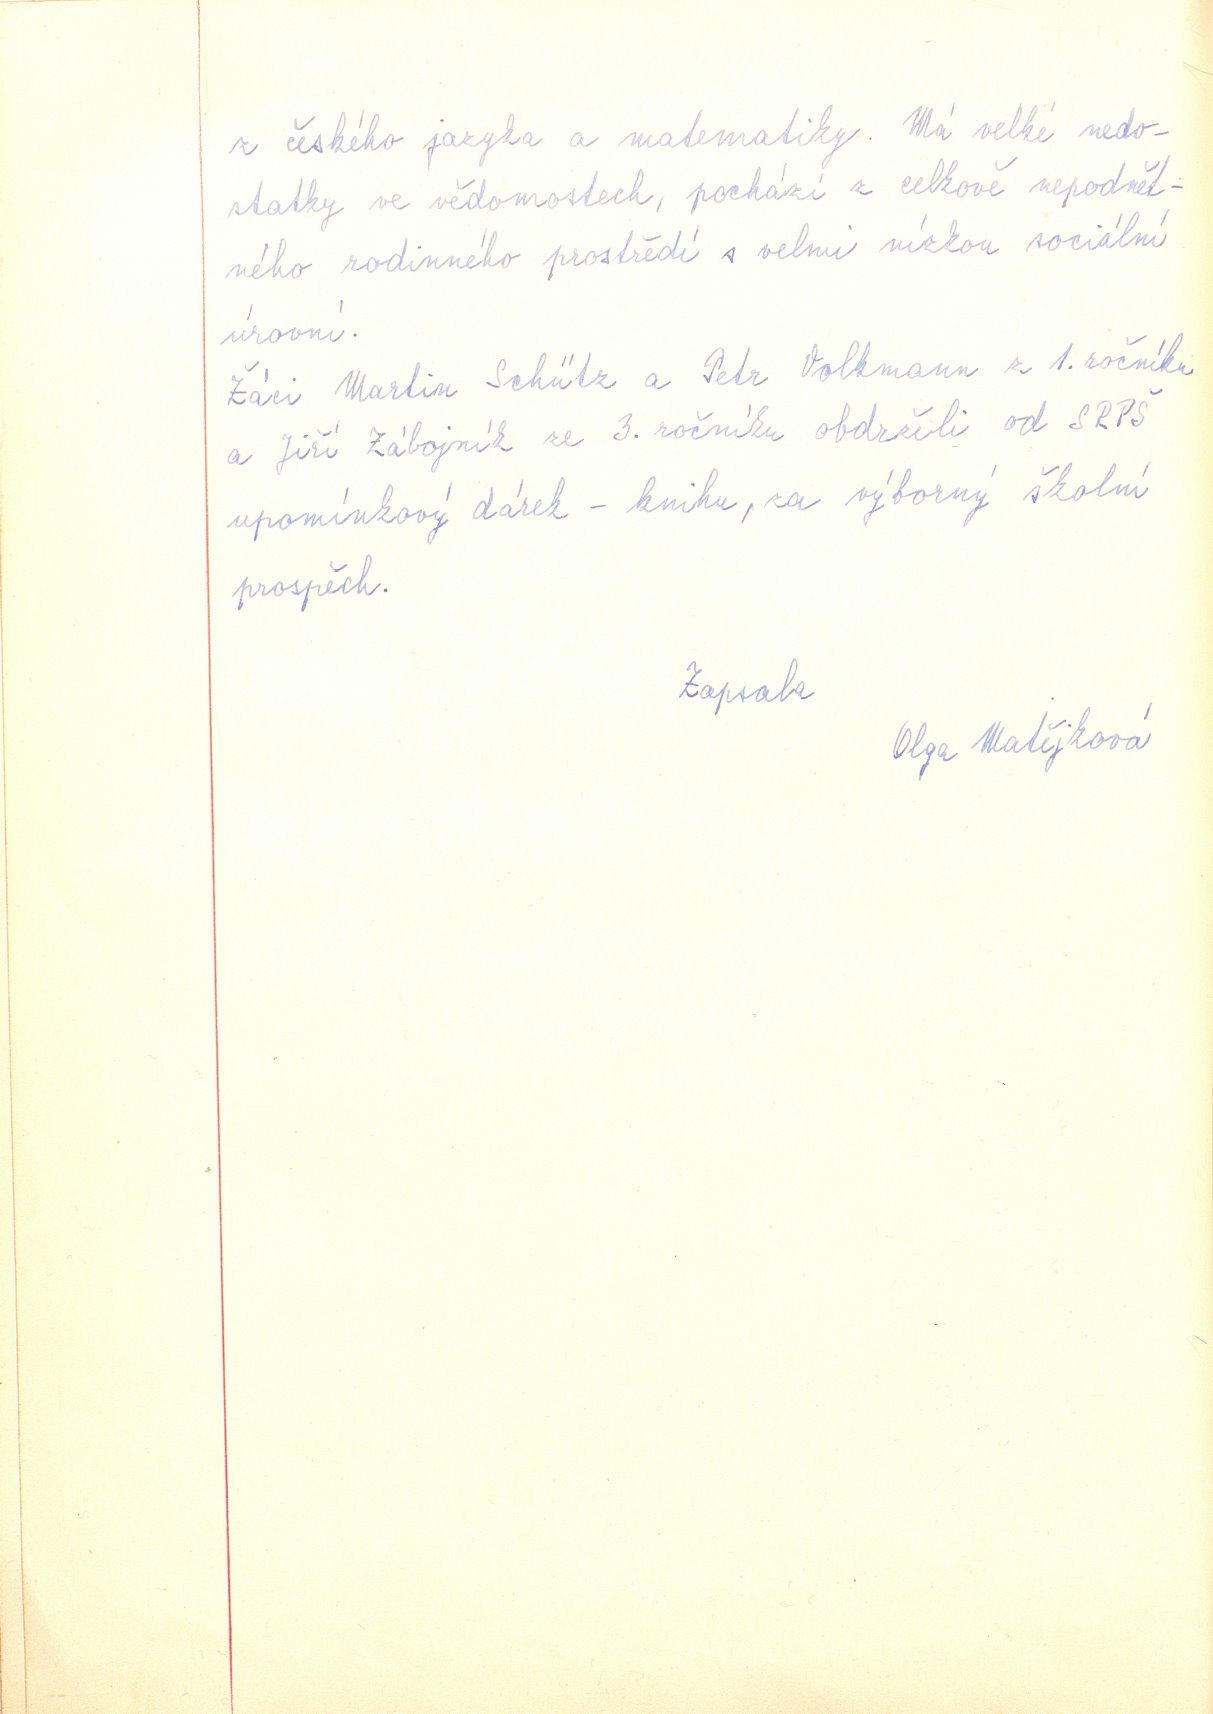 z českého jazyka a matematiky. Má velké nedo-
statky ve vědomostech, pochází z celkově nepodnět-
ného rodinného prostředí s velmi nízkou sociální
úrovní.
Žáci Martin Schütz a Petr Volkmann z 1. ročníku
a Jiří Zábojník ze 3. ročníku obdrželi od SRPŠ
upomínkový dárek - knihu, za výborný školní
prospěch.
Zapsala
Olga Matějková